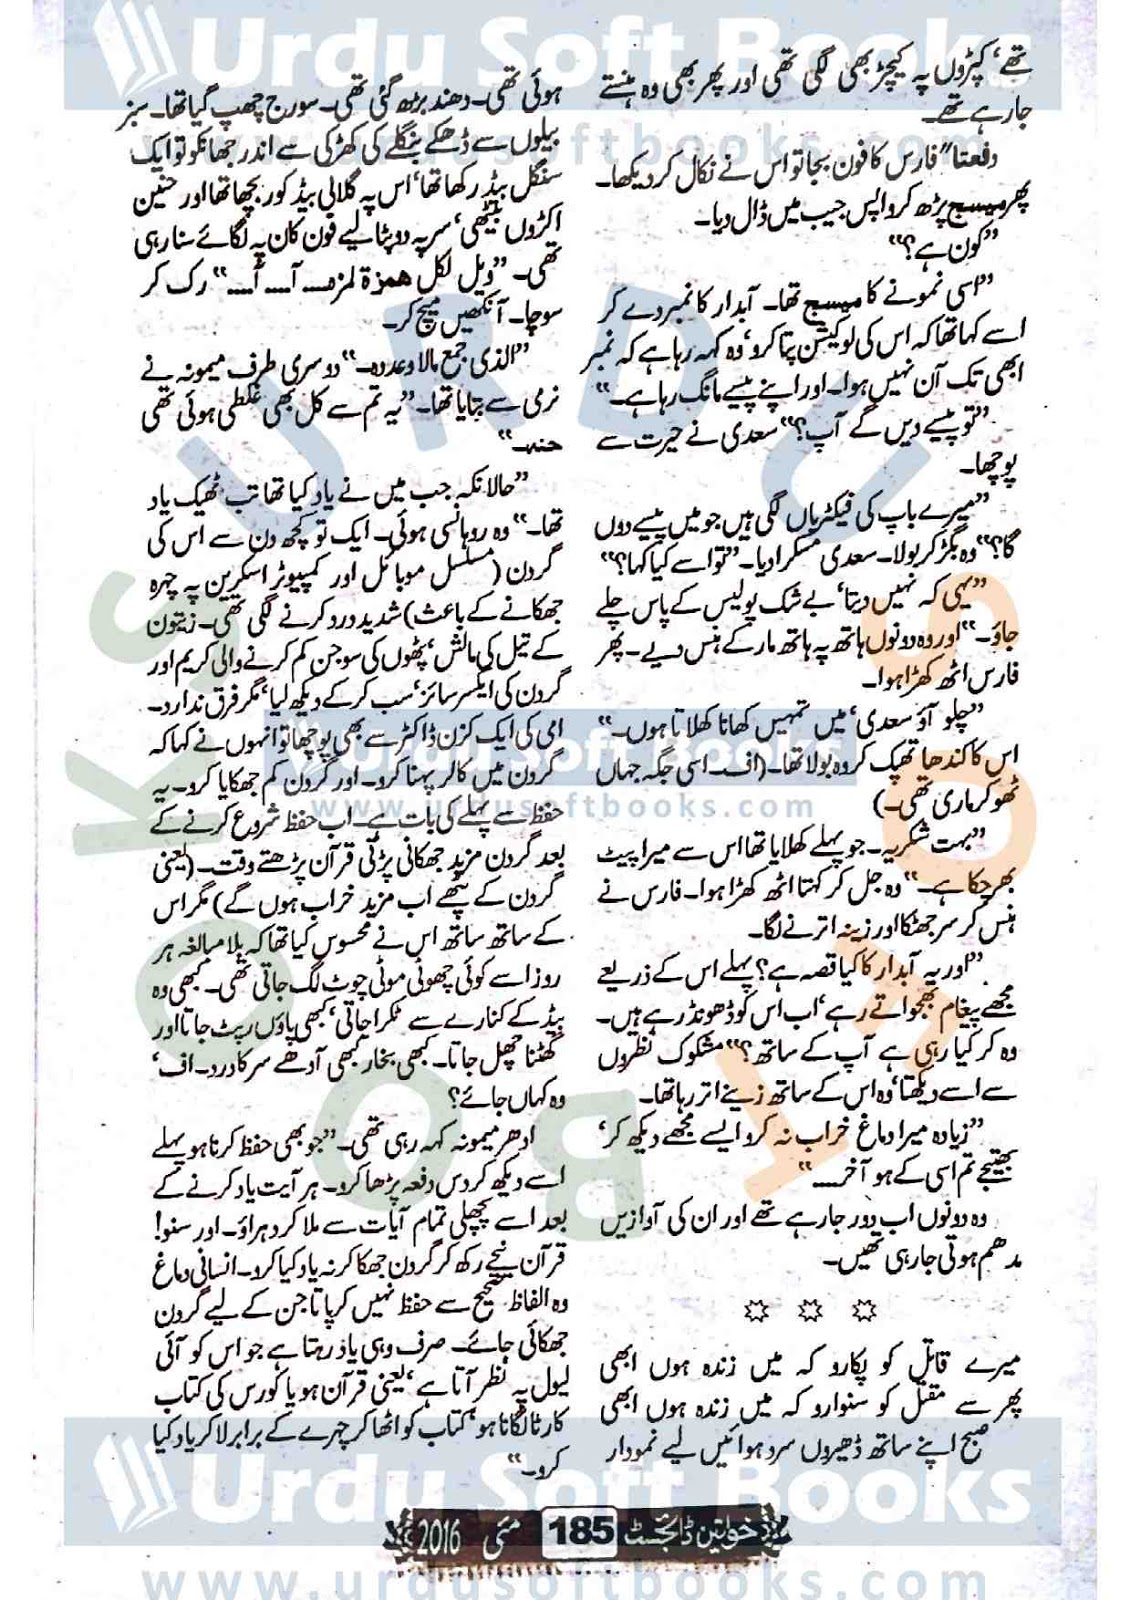 Urdu Soft Books
www.urdusoftbooks.com
تھے‘ کپڑوں پہ کیچڑ بھی لگی تھی اور پھر بھی وہ ہنستے
جا رہے تھے۔
دفعتا" فارس کا فون بجا تو اس نے نکال کر دیکھا۔
پھر میسج پڑھ کر واپس جیب میں ڈال دیا۔
”کون ہے؟“
”اسی نمونے کا میسج تھا۔ آبدار کا نمبر دے کر
اسے کہا تھا کہ اس کی لوکیشن پتا کرو‘ وہ کہہ رہا ہے کہ نمبر
ابھی تک آن نہیں ہوا۔ اور اپنے پیسے مانگ رہا ہے۔“
”تو پیسے دیں گے آپ؟“ سعدی نے حیرت سے
پوچھا۔
”میرے باپ کی فیکٹریاں لگی ہیں جو میں پیسے دوں
گا؟“ وہ بگڑ کر بولا۔ سعدی مسکرا دیا۔ ”تو اسے کیا کہا؟“
”یہی کہ نہیں دیتا‘ بے شک پولیس کے پاس چلے
جاؤ۔“ اور وہ دونوں ہاتھ پہ ہاتھ مار کے ہنس دیے۔ پھر
فارس اٹھ کھڑا ہوا۔
”چلو آؤ سعدی‘ میں تمہیں کھانا کھلاتا ہوں۔“
اس کا کندھا تھپک کر وہ بولا تھا۔ (اف۔ اسی جگہ جہاں
ٹھوکر ماری تھی۔)
”بہت شکریہ۔ جو پہلے کھلایا تھا اس سے میرا پیٹ
بھر چکا ہے۔“ وہ جل کر کہتا اٹھ کھڑا ہوا۔ فارس نے
ہنس کر سر جھٹکا اور زینہ اترنے لگا۔
”اور یہ آبدار کا کیا قصہ ہے؟ پہلے اس کے ذریعے
مجھے پیغام بھجواتے رہے‘ اب اس کو ڈھونڈ رہے ہیں۔
وہ کر کیا رہی ہے آپ کے ساتھ؟“ مشکوک نظروں
سے اسے دیکھتا‘ وہ اس کے ساتھ زینے اتر رہا تھا۔
”زیادہ میرا دماغ خراب نہ کرو ایسے مجھے دیکھ کر‘
بھتیجے تم اسی کے ہو آخر.....“
وہ دونوں اب دور جا رہے تھے اور ان کی آوازیں
مدھم ہوتی جا رہی تھیں۔
میرے قاتل کو پکارو کہ میں زندہ ہوں ابھی
پھر سے مقتل کو سنوارو کہ میں زندہ ہوں ابھی
صبح اپنے ساتھ ڈھیروں سرد ہوائیں لیے نمودار
ہوئی تھی۔ دھند بڑھ گئی تھی۔ سورج چھپ گیا تھا۔ سبز
بیلوں سے ڈھکے بنگلے کی کھڑکی سے اندر جھانکو تو ایک
سنگل بیڈ رکھا تھا‘ اس پہ گلابی بیڈ کور بچھا تھا اور حنین
اکڑوں بیٹھی‘ سر پہ دوپٹا لیے فون کان پہ لگائے سنا رہی
تھی۔ ”ویل لکل ھمزۃ لمزہ.... آ.... آ....“ رک کر
سوچا۔ آنکھیں میچ کر۔
”الذی جمع مالا وعددہ۔“ دوسری طرف میمونہ نے
نرمی سے بتایا تھا۔ ”یہ تم سے کل بھی غلطی ہوئی تھی
حنہ۔“
”حالانکہ جب میں نے یاد کیا تھا تب ٹھیک یاد
تھا۔“ وہ روہانسی ہوئی۔ ایک تو کچھ دن سے اس کی
گردن (مسلسل موبائل اور کمپیوٹر اسکرین پہ چہرہ
جھکانے کے باعث) شدید درد کرنے لگی تھی۔ زیتون
کے تیل کی مالش‘ پٹھوں کی سوجن کم کرنے والی کریم اور
گردن کی ایکسرسائز‘ سب کر کے دیکھ لیا‘ مگر فرق ندارد۔
امی کی ایک کزن ڈاکٹر سے بھی پوچھا تو انہوں نے کہا کہ
گردن میں کالر پہنا کرو۔ اور گردن کم جھکایا کرو۔ یہ
حفظ سے پہلے کی بات ہے۔ اب حفظ شروع کرنے کے
بعد گردن مزید جھکانی پڑتی قرآن پڑھتے وقت۔ (یعنی
گردن کے پٹھے اب مزید خراب ہوں گے) مگر اس
کے ساتھ ساتھ اس نے محسوس کیا تھا کہ بلا مبالغہ ہر
روز اسے کوئی چھوٹی موٹی چوٹ لگ جاتی تھی۔ کبھی وہ
بیڈ کے کنارے سے ٹکرا جاتی‘ کبھی پاؤں رپٹ جاتا اور
گھٹنا چھل جاتا۔ کبھی بخار کبھی آدھے سر کا درد۔ اف‘
وہ کہاں جائے؟
ادھر میمونہ کہہ رہی تھی۔ ”جو بھی حفظ کرنا ہو پہلے
اسے دیکھ کر دس دفعہ پڑھا کرو۔ ہر آیت یاد کرنے کے
بعد اسے پچھلی تمام آیات سے ملا کر دہراؤ۔ اور سنو!
قرآن نیچے رکھ کر گردن جھکا کر نہ یاد کیا کرو۔ انسانی دماغ
وہ الفاظ صحیح سے حفظ نہیں کر پاتا جن کے لیے گردن
جھکائی جائے۔ صرف وہی یاد رہتا ہے جو اس کو آئی
لیول پہ نظر آتا ہے‘ یعنی قرآن ہو یا کورس کی کتاب
کا رٹا لگانا ہو‘ کتاب کو اٹھا کر چہرے کے برابر لا کر یاد کیا
کرو۔“
URDU SOFT BOOKS
Urdu Soft Books
www.urdusoftbooks.com
Urdu Soft Books
خواتین ڈائجسٹ 185 مئی 2016
www.urdusoftbooks.com